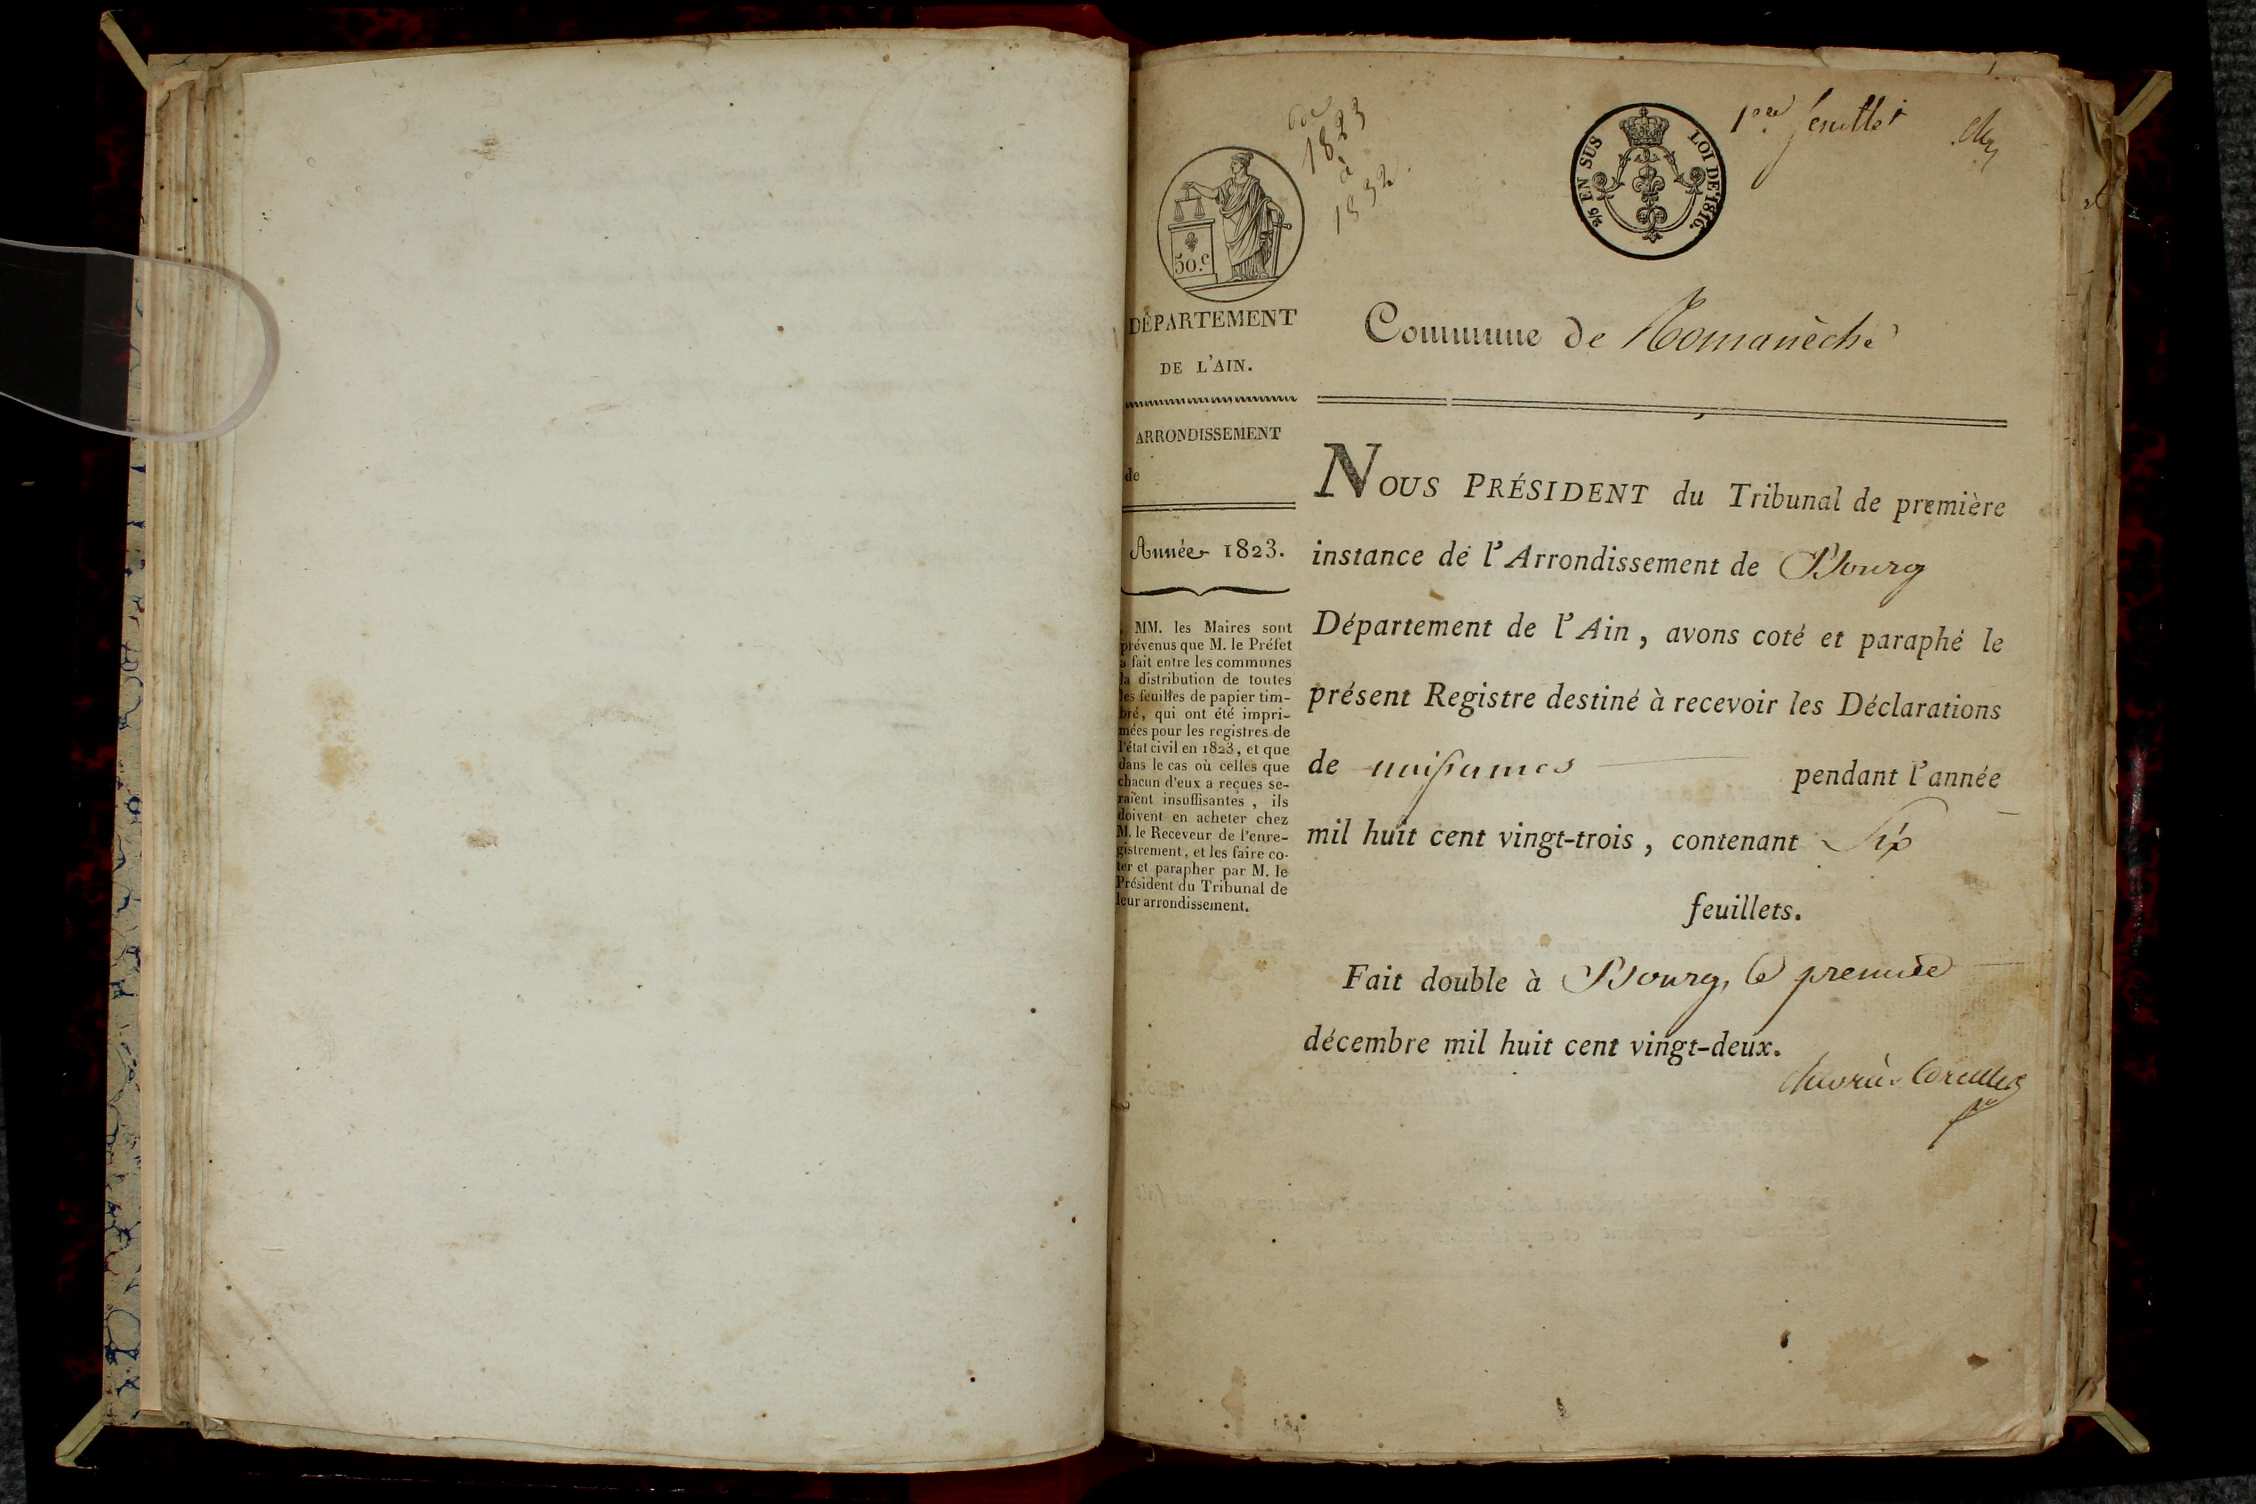 1er feuillet
de
1823
à
1832
5/2 EN SUS LOI DE 1816.
50.c
DÉPARTEMENT
DE L'AIN.
ARRONDISSEMENT
de
Année 1823.
MM. les Maires sont
prévenus que M. le Préfet
a fait entre les communes
la distribution de toutes
les feuilles de papier tim-
bré, qui ont été impri-
mées pour les registres de
l'état civil en 1823, et que
dans le cas où celles que
chacun d'eux a reçues se-
raient insuffisantes, ils
doivent en acheter chez
M. le Receveur de l'enre-
gistrement, et les faire co-
ter et parapher par M. le
Président du Tribunal de
leur arrondissement.
Commune de Romanèche
NOUS PRÉSIDENT du Tribunal de première
instance de l'Arrondissement de Bourg
Département de l'Ain, avons coté et paraphé le
présent Registre destiné à recevoir les Déclarations
de naissances pendant l'année
mil huit cent vingt-trois, contenant Six
feuillets.
Fait double à Bourg, le premier
décembre mil huit cent vingt-deux.